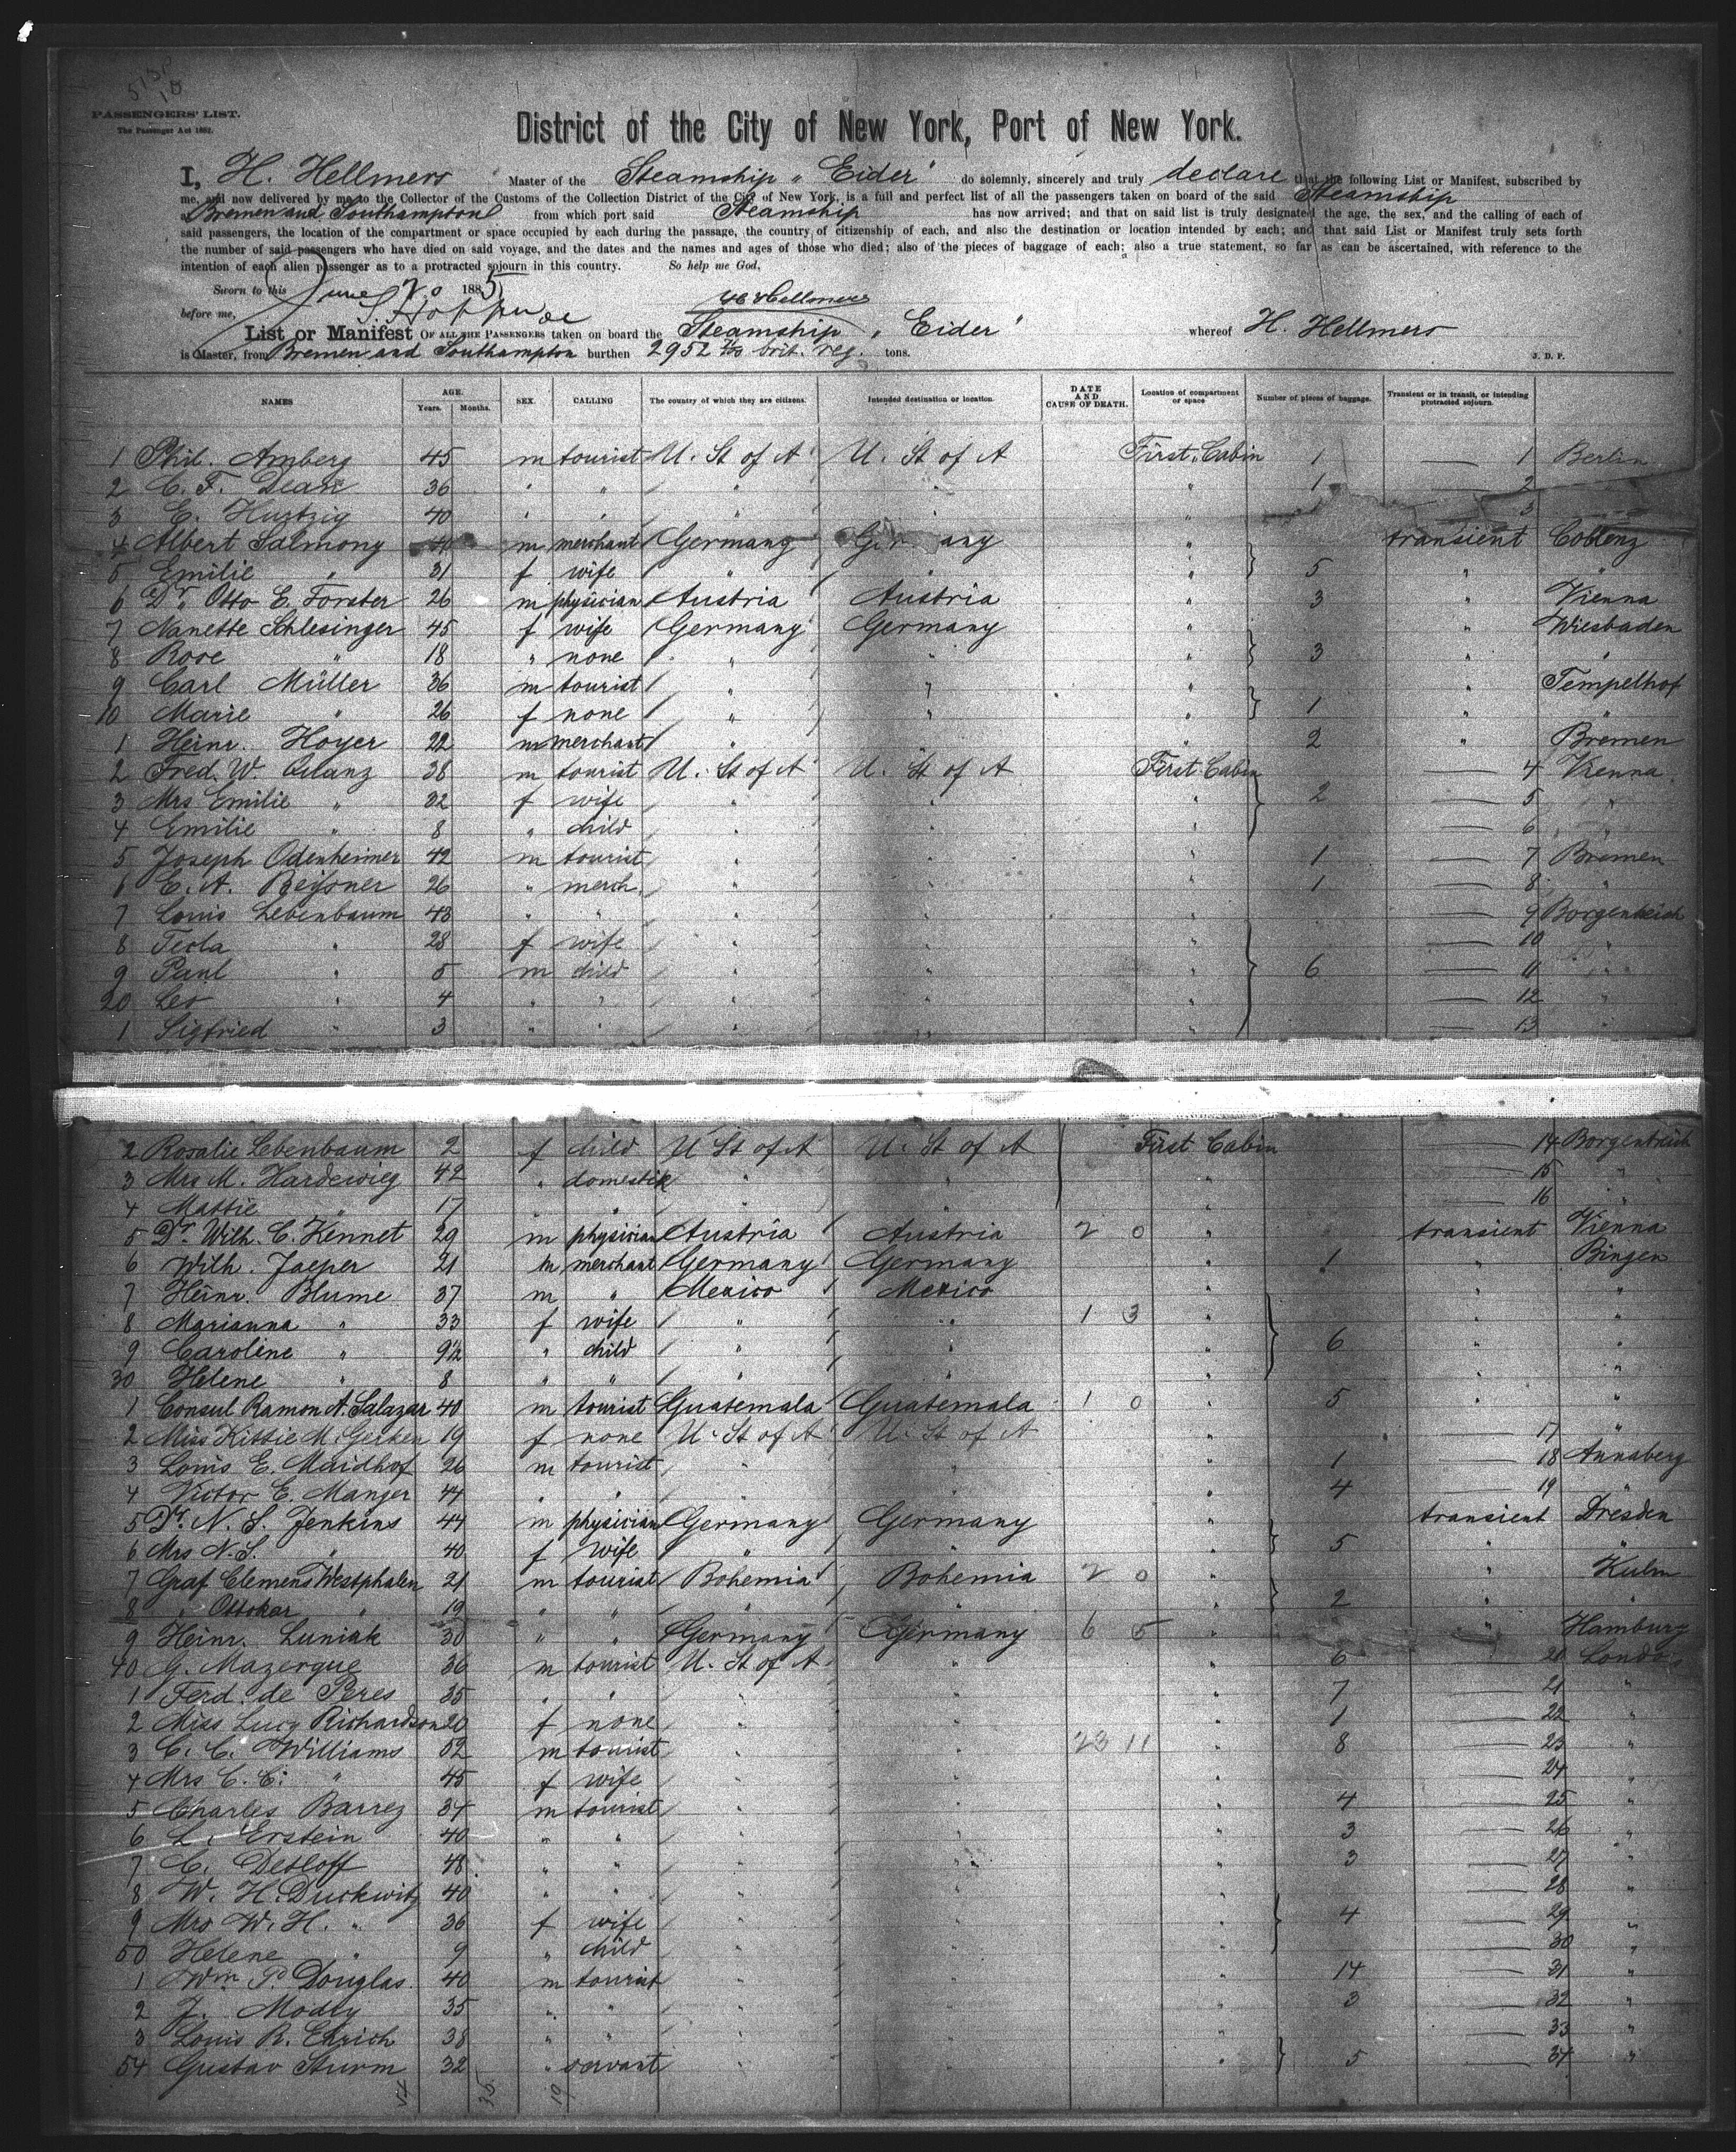 PASSENGERS' LIST.
The Passenger Act 1882.
District of the City of New York, Port of New York.
I, H. Hellmers Master of the Steamship "Eider" do solemnly, sincerely and truly declare that the following List or Manifest, subscribed by
me, and now delivered by me to the Collector of the Customs of the Collection District of the City of New York, is a full and perfect list of all the passengers taken on board of the said Steamship
at Bremen and Southampton from which port said Steamship has now arrived; and that on said list is truly designated the age, the sex, and the calling of each of
said passengers, the location of the compartment or space occupied by each during the passage, the country of citizenship of each, and also the destination or location intended by each; and that said List or Manifest truly sets forth
the number of said passengers who have died on said voyage, and the dates and the names and ages of those who died; also of the pieces of baggage of each; also a true statement, so far as can be ascertained, with reference to the
intention of each alien passenger as to a protracted sojourn in this country. So help me God,
Sworn to this June 1885
before me, H. Hellmers
List or Manifest OF ALL THE PASSENGERS taken on board the Steamship "Eider" whereof H. Hellmers
is Master, from Bremen and Southampton burthen 2952 brit. reg. tons. J. D. P.
NAMES AGE. Years. Months. SEX. CALLING The country of which they are citizens. Intended destination or location. DATE AND CAUSE OF DEATH. Location of compartment or space Number of pieces of baggage. Transient or in transit, or intending protracted sojourn.
1 Phil. Amberg 45 m tourist U. St of A U. St of A First Cabin 1 — 1 Berlin
2 C. F. Dean 36 " " " " " 1 — 2
3 E. Hurtzig 40 " " " " " 1 3
4 Albert Salmony 40 m merchant Germany Germany " transient Coblenz
5 Emilie " 31 f wife " " " 5 " "
6 Dr. Otto E. Forster 26 m physician Austria Austria " 3 " Vienna
7 Nanette Schlesinger 45 f wife Germany Germany " " Wiesbaden
8 Rose " 18 " none " " " 3 " "
9 Carl Müller 36 m tourist " " " " Tempelhof
10 Marie " 26 f none " " " 1 " "
1 Heinr. Hoyer 22 m merchant " " " 2 " Bremen
2 Fred. W. Glanz 38 m tourist U. St of A U. St of A First Cabin — 4 Vienna
3 Mrs Emilie " 32 f wife " " " 2 — 5 "
4 Emilie " 8 " child " " " 6 "
5 Joseph Odenheimer 42 m tourist " " " 1 — 7 Bremen
6 E. A. Reysner 26 " merch. " " " 1 — 8 "
7 Louis Lebenbaum 43 " " " " " — 9 Borgentreich
8 Tecla " 28 f wife " " " — 10 "
9 Paul " 5 m child " " " 6 — 11 "
20 Leo " 4 " " " " " — 12 "
1 Sigfried " 3 " " " " " — 13 "
2 Rosalie Lebenbaum 2 f child U St of A U. St of A First Cabin — 14 Borgentreich
3 Mrs M. Hardewieg 42 " domestik " " " — 15 "
4 Mattie " 17 " " " " " — 16 "
5 Dr. Wilh. C. Kennet 29 m physician Austria Austria 2 0 " transient Vienna
6 Wilh. Jaeper 21 m merchant Germany Germany " 1 " Bingen
7 Heinr. Blume 37 m " Mexico Mexico " " "
8 Marianna " 33 f wife " " 1 3 " " "
9 Caroline " 9½ " child " " " 6 " "
30 Helene " 8 " " " " " " "
1 Consul Ramon A. Salazar 40 m tourist Guatemala Guatemala 1 0 " 5 " "
2 Miss Kittie M. Gerken 19 f none U. St of A U. St of A " — 17 "
3 Louis E. Maidhof 26 m tourist " " " 1 — 18 Annaberg
4 Victor E. Manger 44 " " " " " 4 — 19
5 Dr. N. S. Jenkins 44 m physician Germany Germany " transient Dresden
6 Mrs N. S. " 40 f wife " " " 5 " "
7 Graf Clemens Westphalen 21 m tourist Bohemia Bohemia 2 0 " " Kulm
8 " Ottokar " 19 " " " " " 2 " "
9 Heinr. Luniak 30 " " Germany Germany 6 5 " " Hamburg
40 G. Mazergue 36 m tourist U. St of A " " 6 20 London
1 Ferd. de Peres 35 " " " " " 7 — 21 "
2 Miss Lucy Richardson 20 f none " " " 1 — 22 "
3 C. C. Williams 52 m tourist " " 23 11 " 8 — 23 "
4 Mrs C. C. " 45 f wife " " " — 24 "
5 Charles Barrez 34 m tourist " " " 4 — 25 "
6 L. Erstein 40 " " " " " 3 — 26 "
7 C. Detloff 48 " " " " " 3 — 27 "
8 W. H. Duckwitz 40 " " " " " — 28 "
9 Mrs W. H. " 36 f wife " " " 4 — 29 "
50 Helene " 9 " child " " " — 30 "
1 Wm P. Douglas. 40 m tourist " " " 14 — 31 "
2 J. Modry 35 " " " " " 3 — 32 "
3 Louis R. Ehrich 38 " " " " " — 33 "
54 Gustav Sturm 32 " servant " " " 5 — 34 "